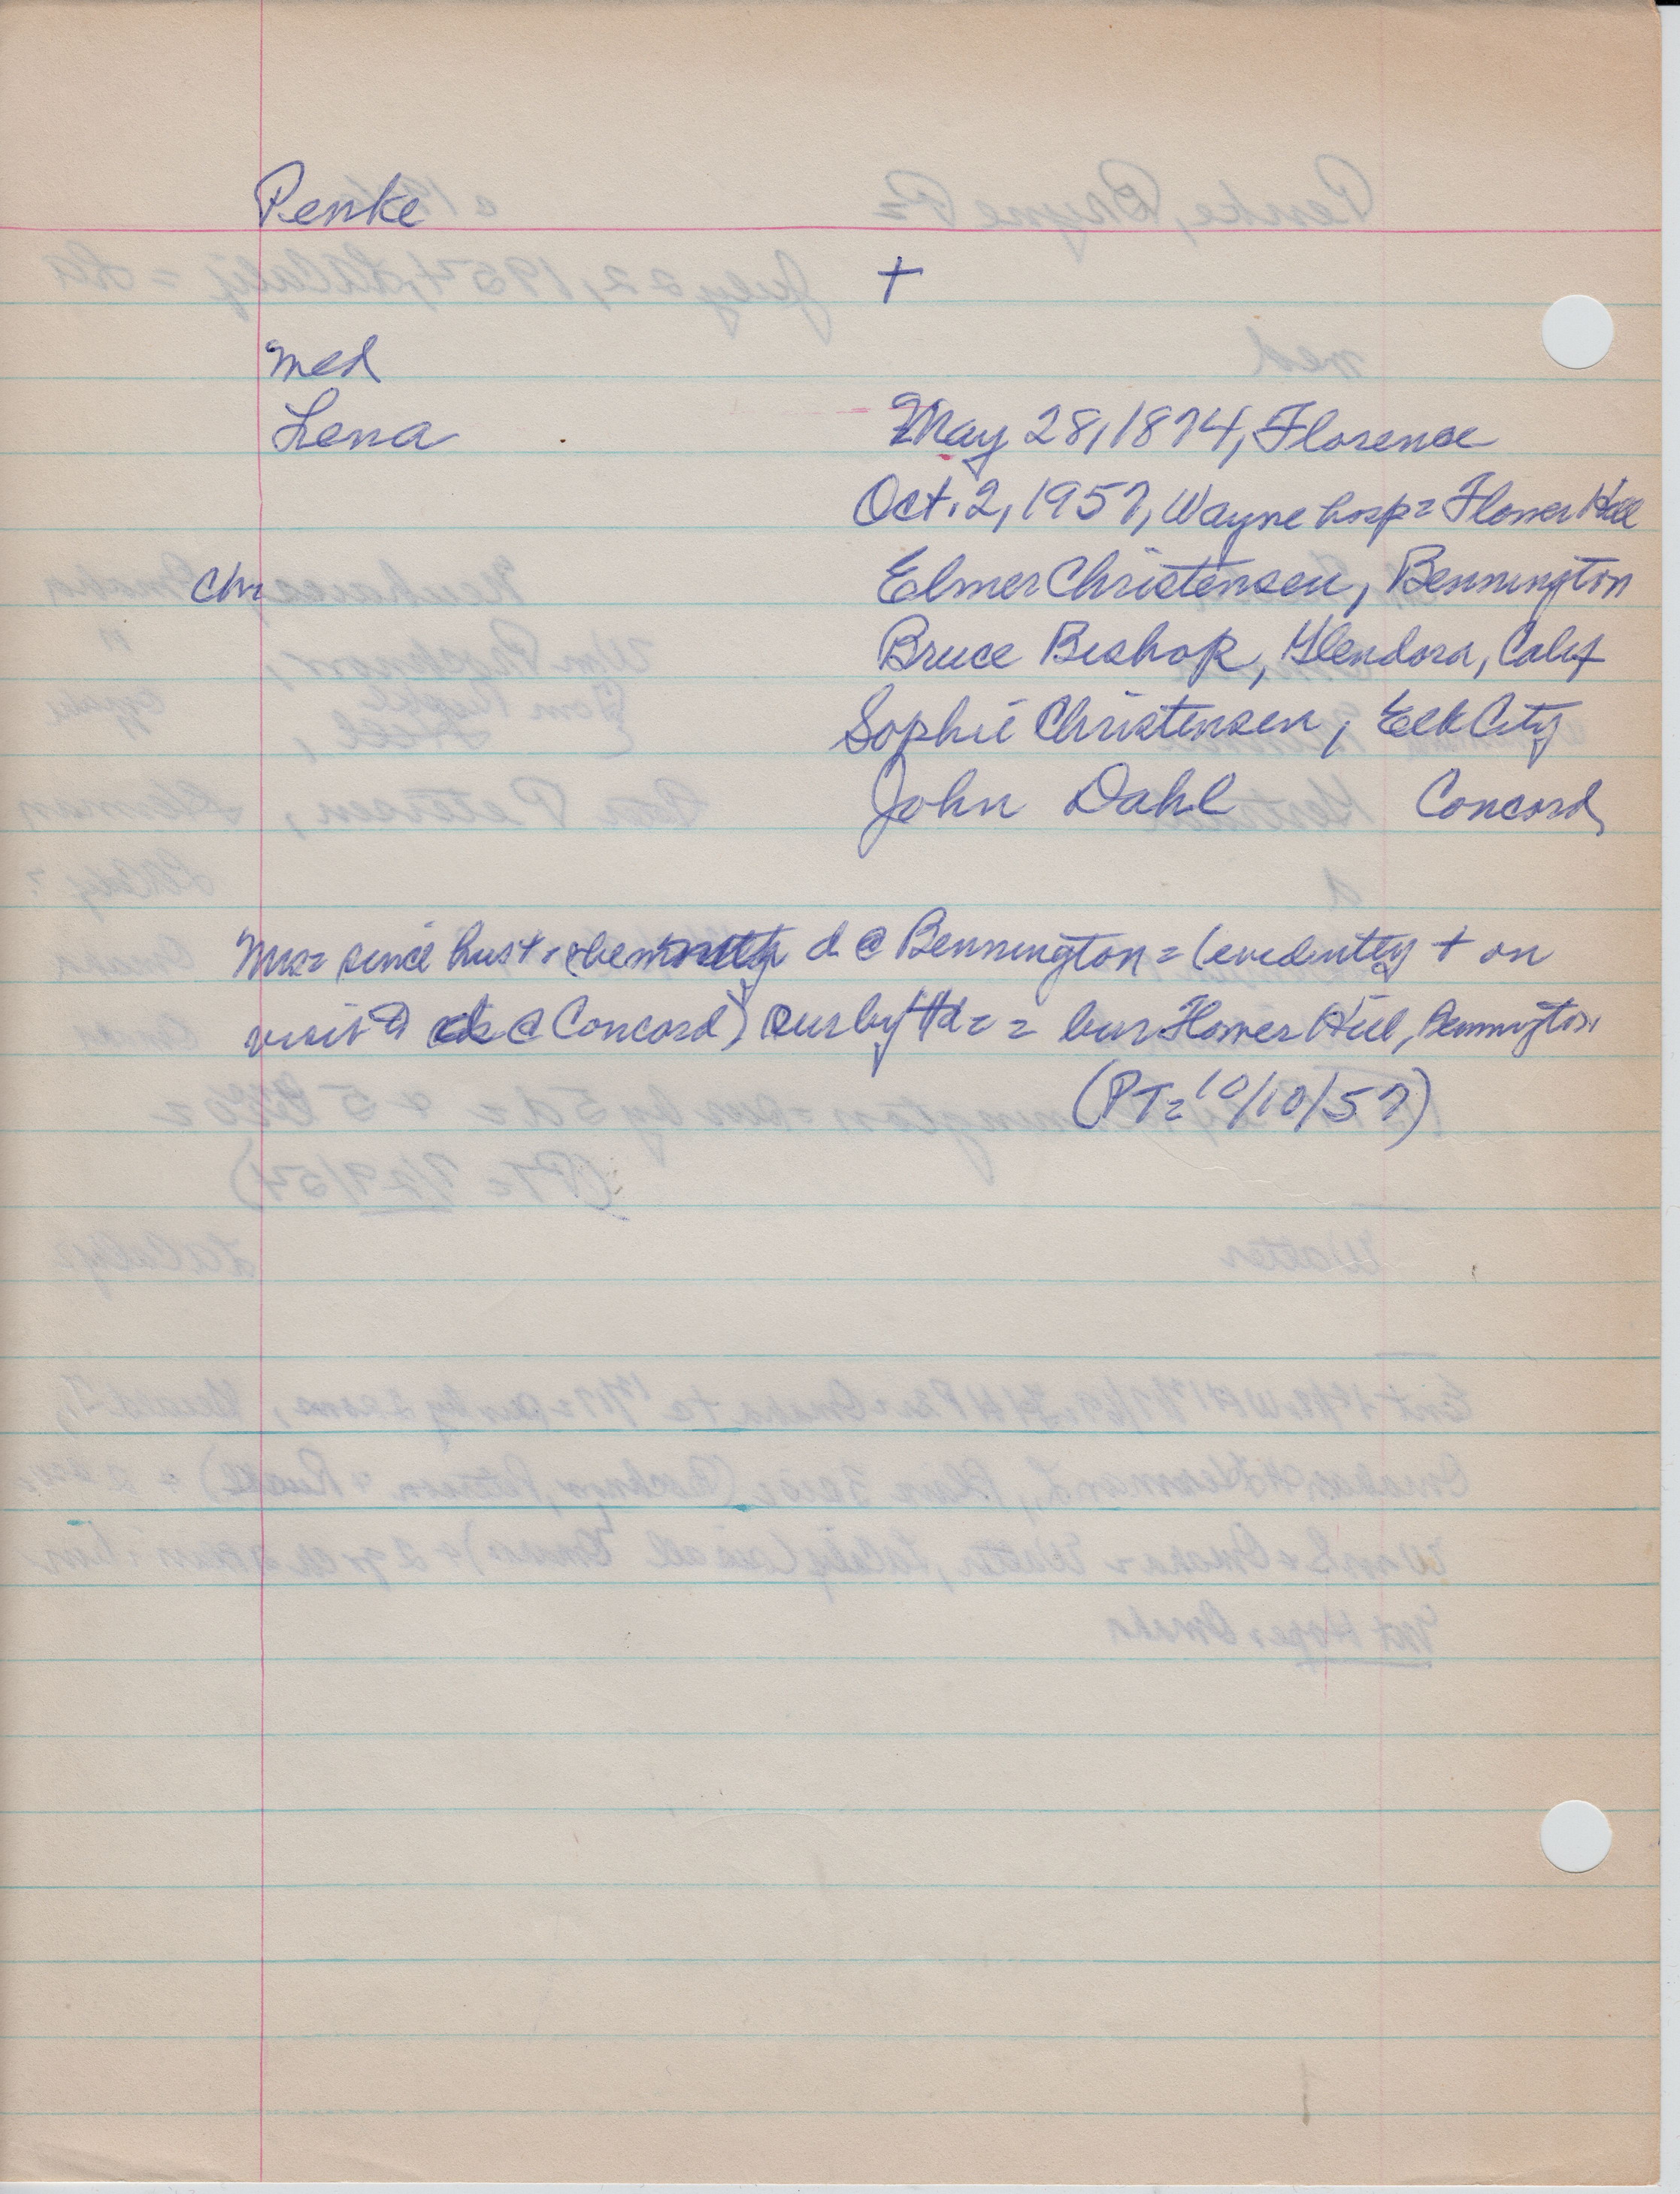 Penke
+
med
Lena May 28, 1874, Florence
Oct. 2, 1957, Wayne hosp= Flower Hill
Chn Elmer Christensen, Bennington
Bruce Bishop, Glendora, Calif
Sophie Christensen, Elk City
John Dahl Concord
Mrs= since hus + d @ Bennington = (evidently + on
visit @ Concord) sur by 4 d= = bur Flower Hill, Bennington
(PT= 10/10/57)